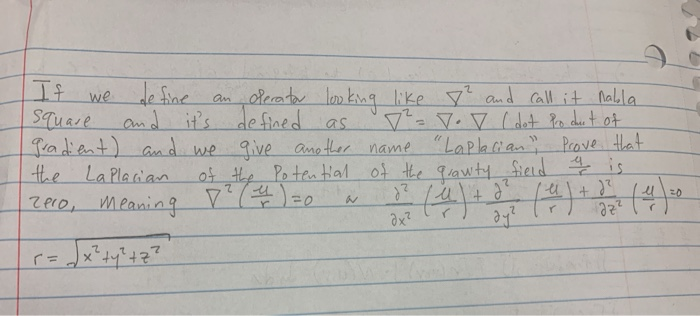 If we define an operator looking like ∇² and call it nabla
square and it's defined as ∇² = ∇·∇ (dot product of
gradient) and we give another name "Laplacian", Prove that
the Laplacian of the Potential of the gravity field μ/r is
zero, meaning ∇²(μ/r)=0 ∂²/∂x² (μ/r) + ∂²/∂y² (μ/r) + ∂²/∂z² (μ/r)=0
r = √x²+y²+z²